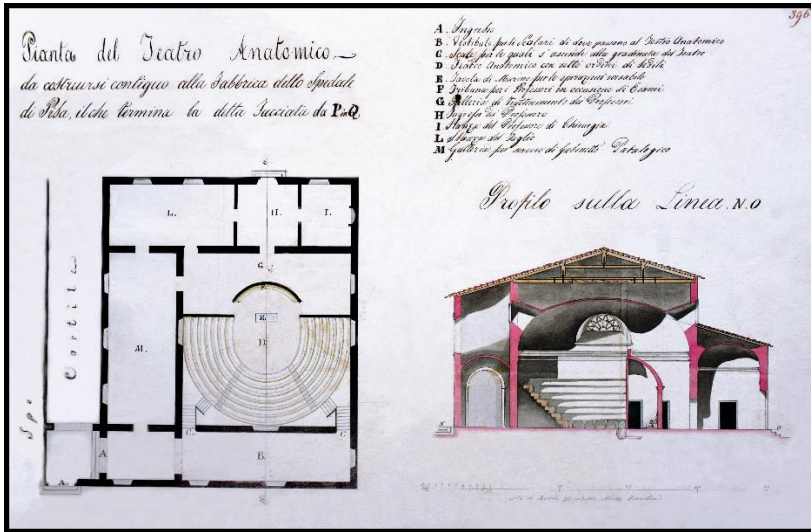 396
Pianta del Teatro Anatomico
da costruirsi contiguo alla Fabbrica dello Spedale
di Pisa, il che termina la detta Facciata da P in Q.
A. Ingresso
B. Vestibulo per li Scolari di dove passano al Teatro Anatomico
C. Scale per le quali s'ascende alla gradinata del Teatro
D Teatro Anatomico con sette ordini di Sedili
E. Tavola di Marmo per le
F Tribuna per i Professori in occasione di Esami
G Galleria di Trattenimento dei Professori
H Ingresso dei Professori
I. Stanza del Professore di Chirurgia
L. Stanza del Taglio
M Galleria per di Gabinetto Patologico
Profilo sulla Linea N.O
L.
H.
I.
G.
E.
D
M.
Cortile
Spe
C.
C
B.
A
A.
N
O